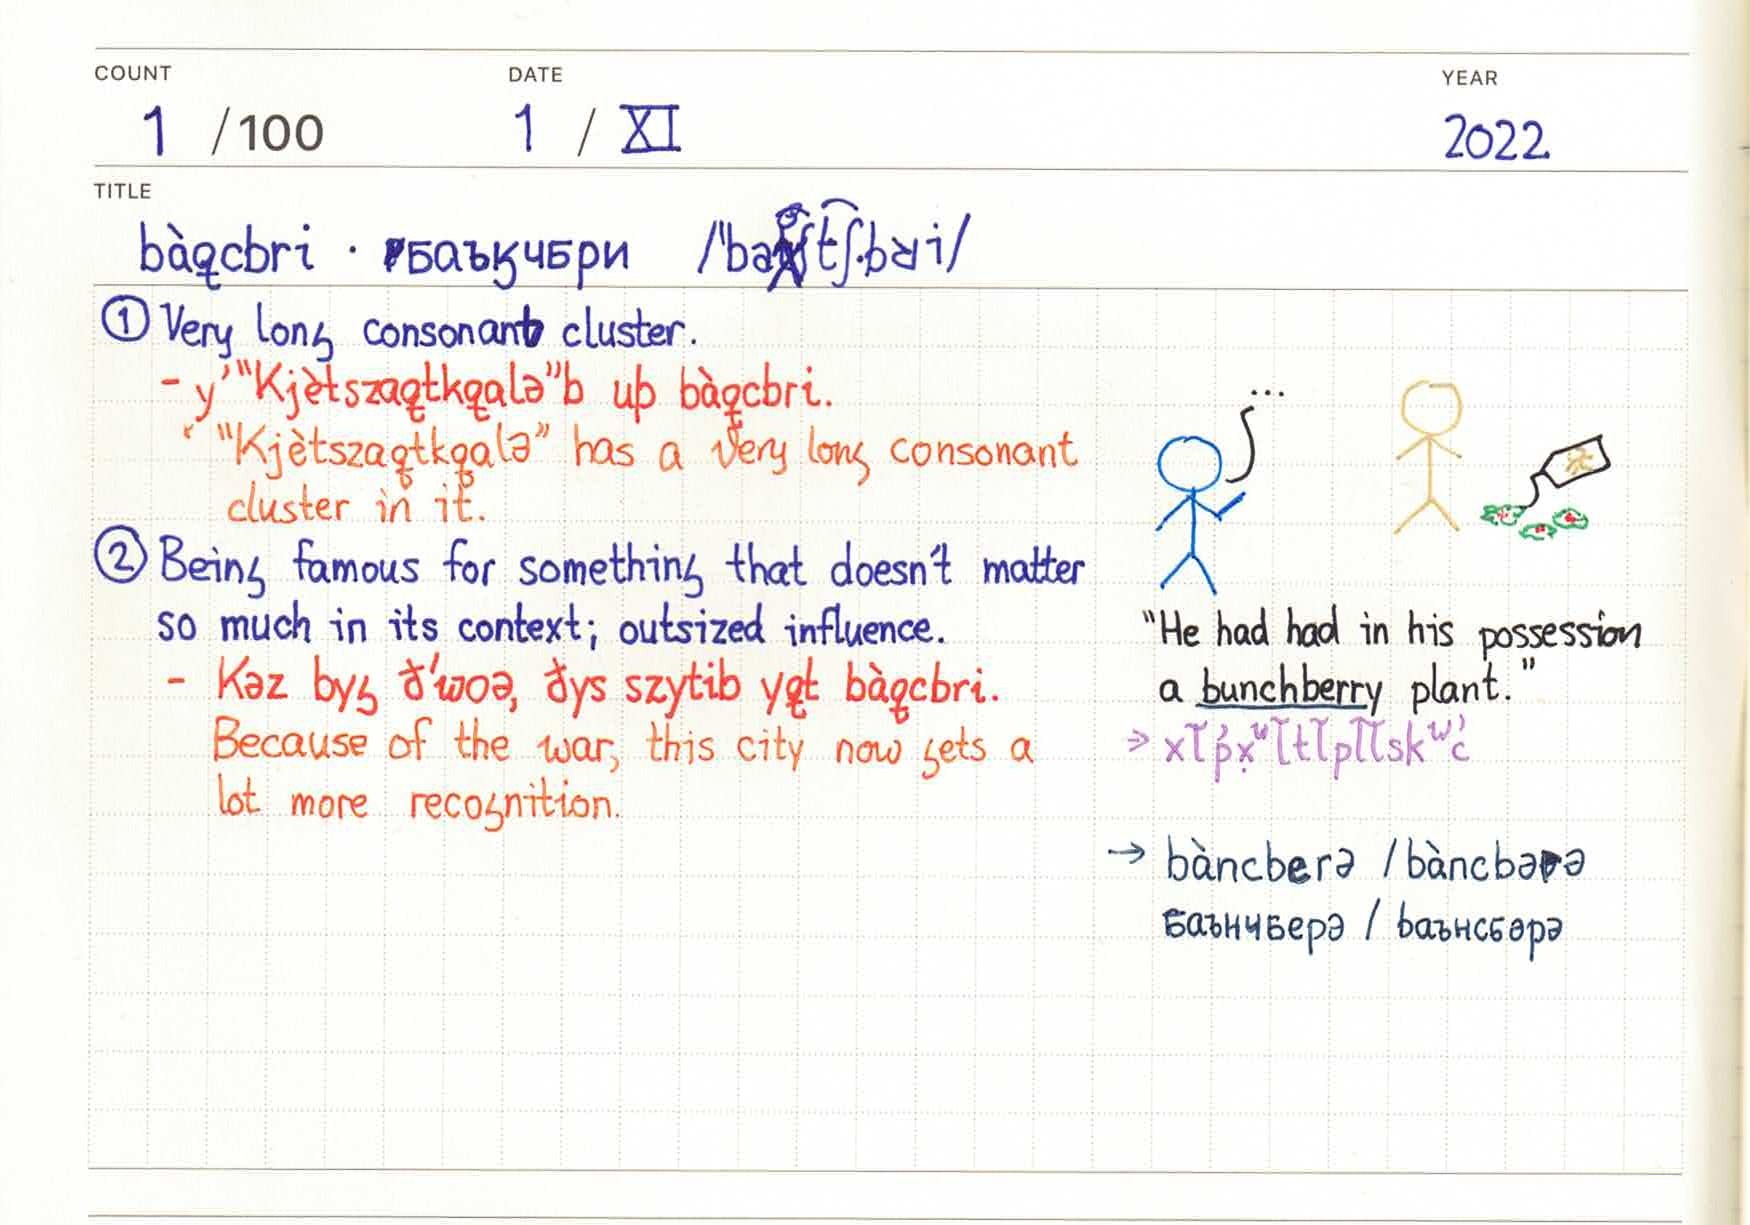 COUNT DATE YEAR
1 /100 1 / XI 2022
TITLE
bàqcbri · баъқчбри
① Very long consonant cluster.
- y'"Kjètszaqtkqalə"b up bàqcbri.
"Kjètszaqtkqalə" has a very long consonant
cluster in it.
② Being famous for something that doesn't matter
so much in its context; outsized influence.
- Kəz byg ð'woə, ðys szytib yqt bàqcbri.
Because of the war, this city now gets a
lot more recognition.
...
"He had had in his possession
a bunchberry plant."
→ bàncberə / bàncbərə
баънчберə / баънсбəрə